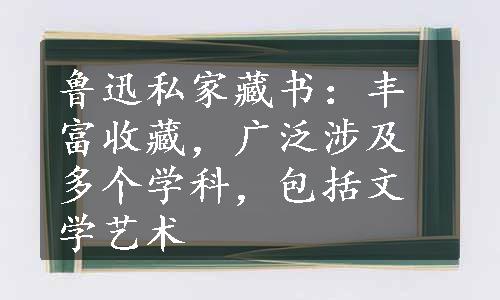 鲁迅私家藏书：丰
富收藏，广泛涉及
多个学科，包括文
学艺术